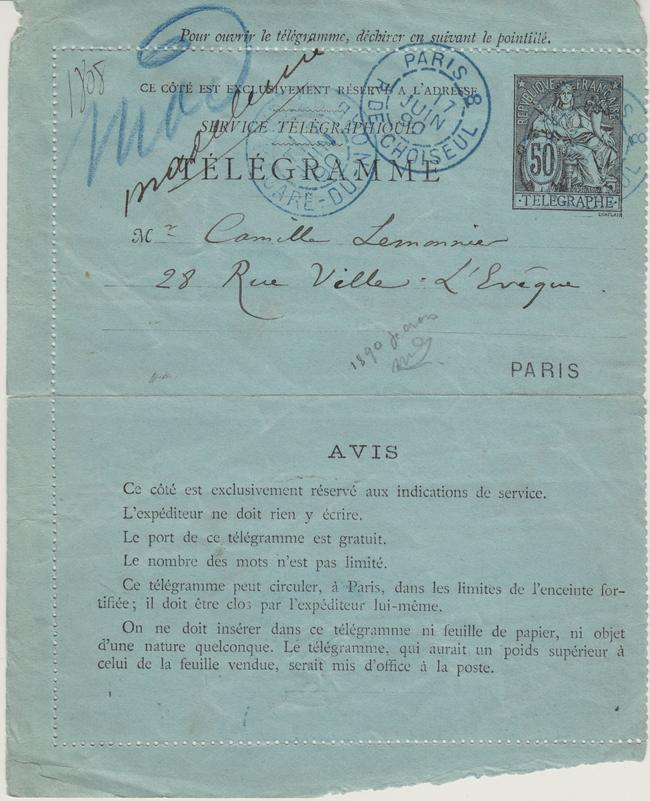 Pour ouvrir le télégramme, déchirer en suivant le pointillé.
CE CÔTÉ EST EXCLUSIVEMENT RÉSERVÉ A L'ADRESSE
SERVICE TÉLÉGRAPHIQUE
TÉLÉGRAMME
Madeleine
PARIS 8
17
JUIN
90
R. DE CHOISEUL
GARE-DU
RÉPUBLIQUE FRANÇAISE
50
TÉLÉGRAPHE
CHAPLAIN
Mr Camille Lemonnier
28 Rue Ville-L'Evêque
PARIS
1890
AVIS
Ce côté est exclusivement réservé aux indications de service.
L'expéditeur ne doit rien y écrire.
Le port de ce télégramme est gratuit.
Le nombre des mots n'est pas limité.
Ce télégramme peut circuler, à Paris, dans les limites de l'enceinte for-
tifiée; il doit être clos par l'expéditeur lui-même.
On ne doit insérer dans ce télégramme ni feuille de papier, ni objet
d'une nature quelconque. Le télégramme, qui aurait un poids supérieur à
celui de la feuille vendue, serait mis d'office à la poste.